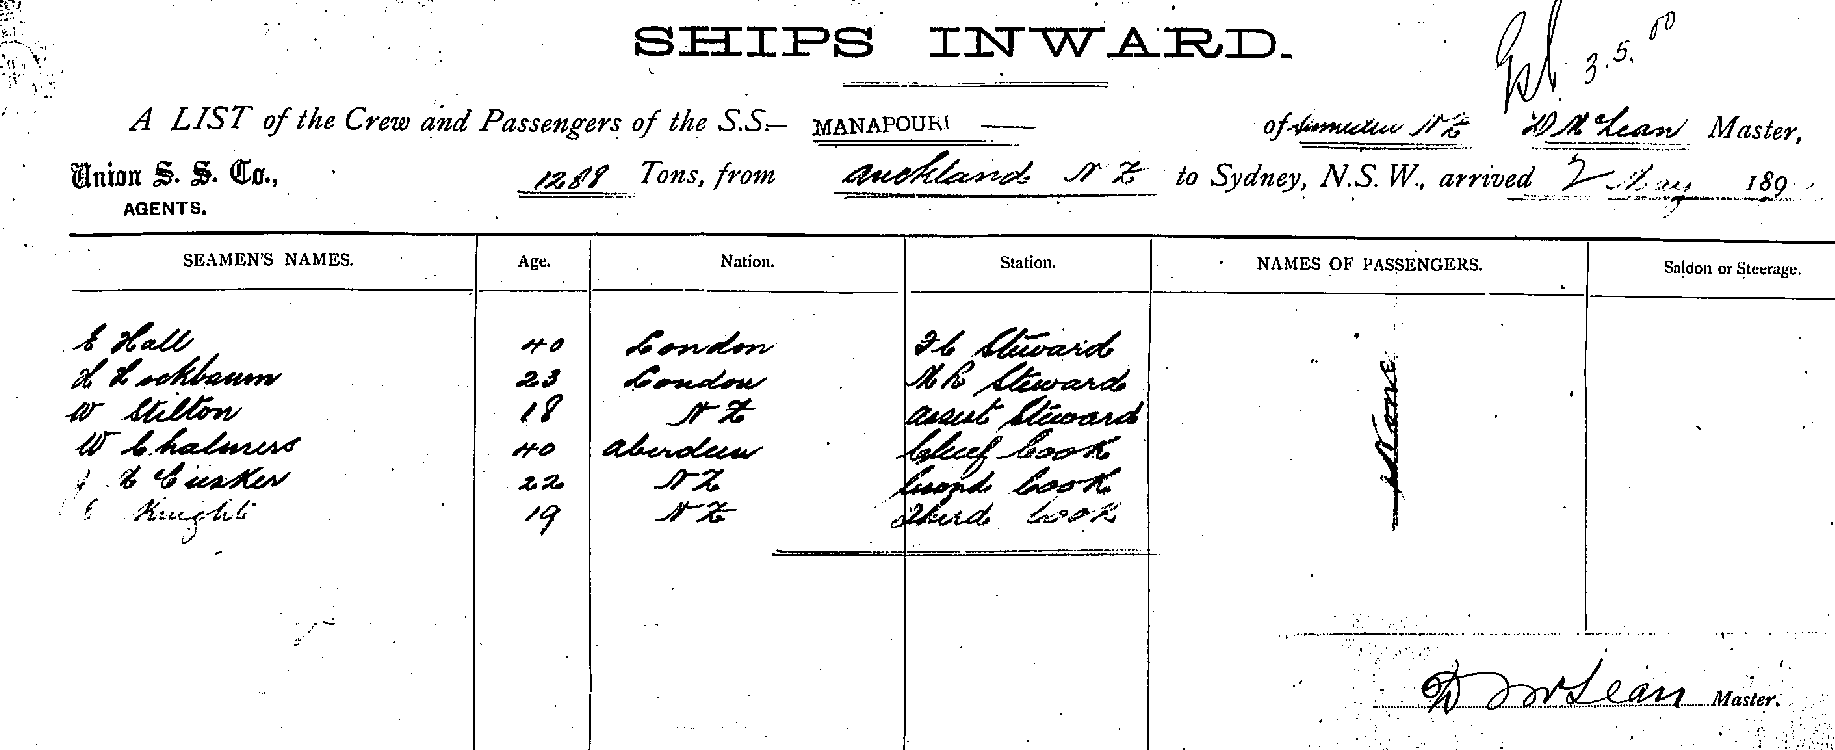 SHIPS INWARD.
3.5.00
A LIST of the Crew and Passengers of the S.S.— MANAPOURI — of Dunedin NZ D McLean Master,
Union S. S. Co., 1288 Tons, from Auckland NZ to Sydney, N.S.W., arrived 2 May 189
AGENTS.
SEAMEN'S NAMES. Age. Nation. Station. NAMES OF PASSENGERS. Saloon or Steerage.
E Hall 40 London FC Steward
H Hockbaum 23 London MR Steward
W Stilton 18 NZ Assist Steward
W Chalmers 40 Aberdeen Chief Cook
Cusker 22 NZ Second Cook
Knight 19 NZ Third Cook
None
D McLean Master.